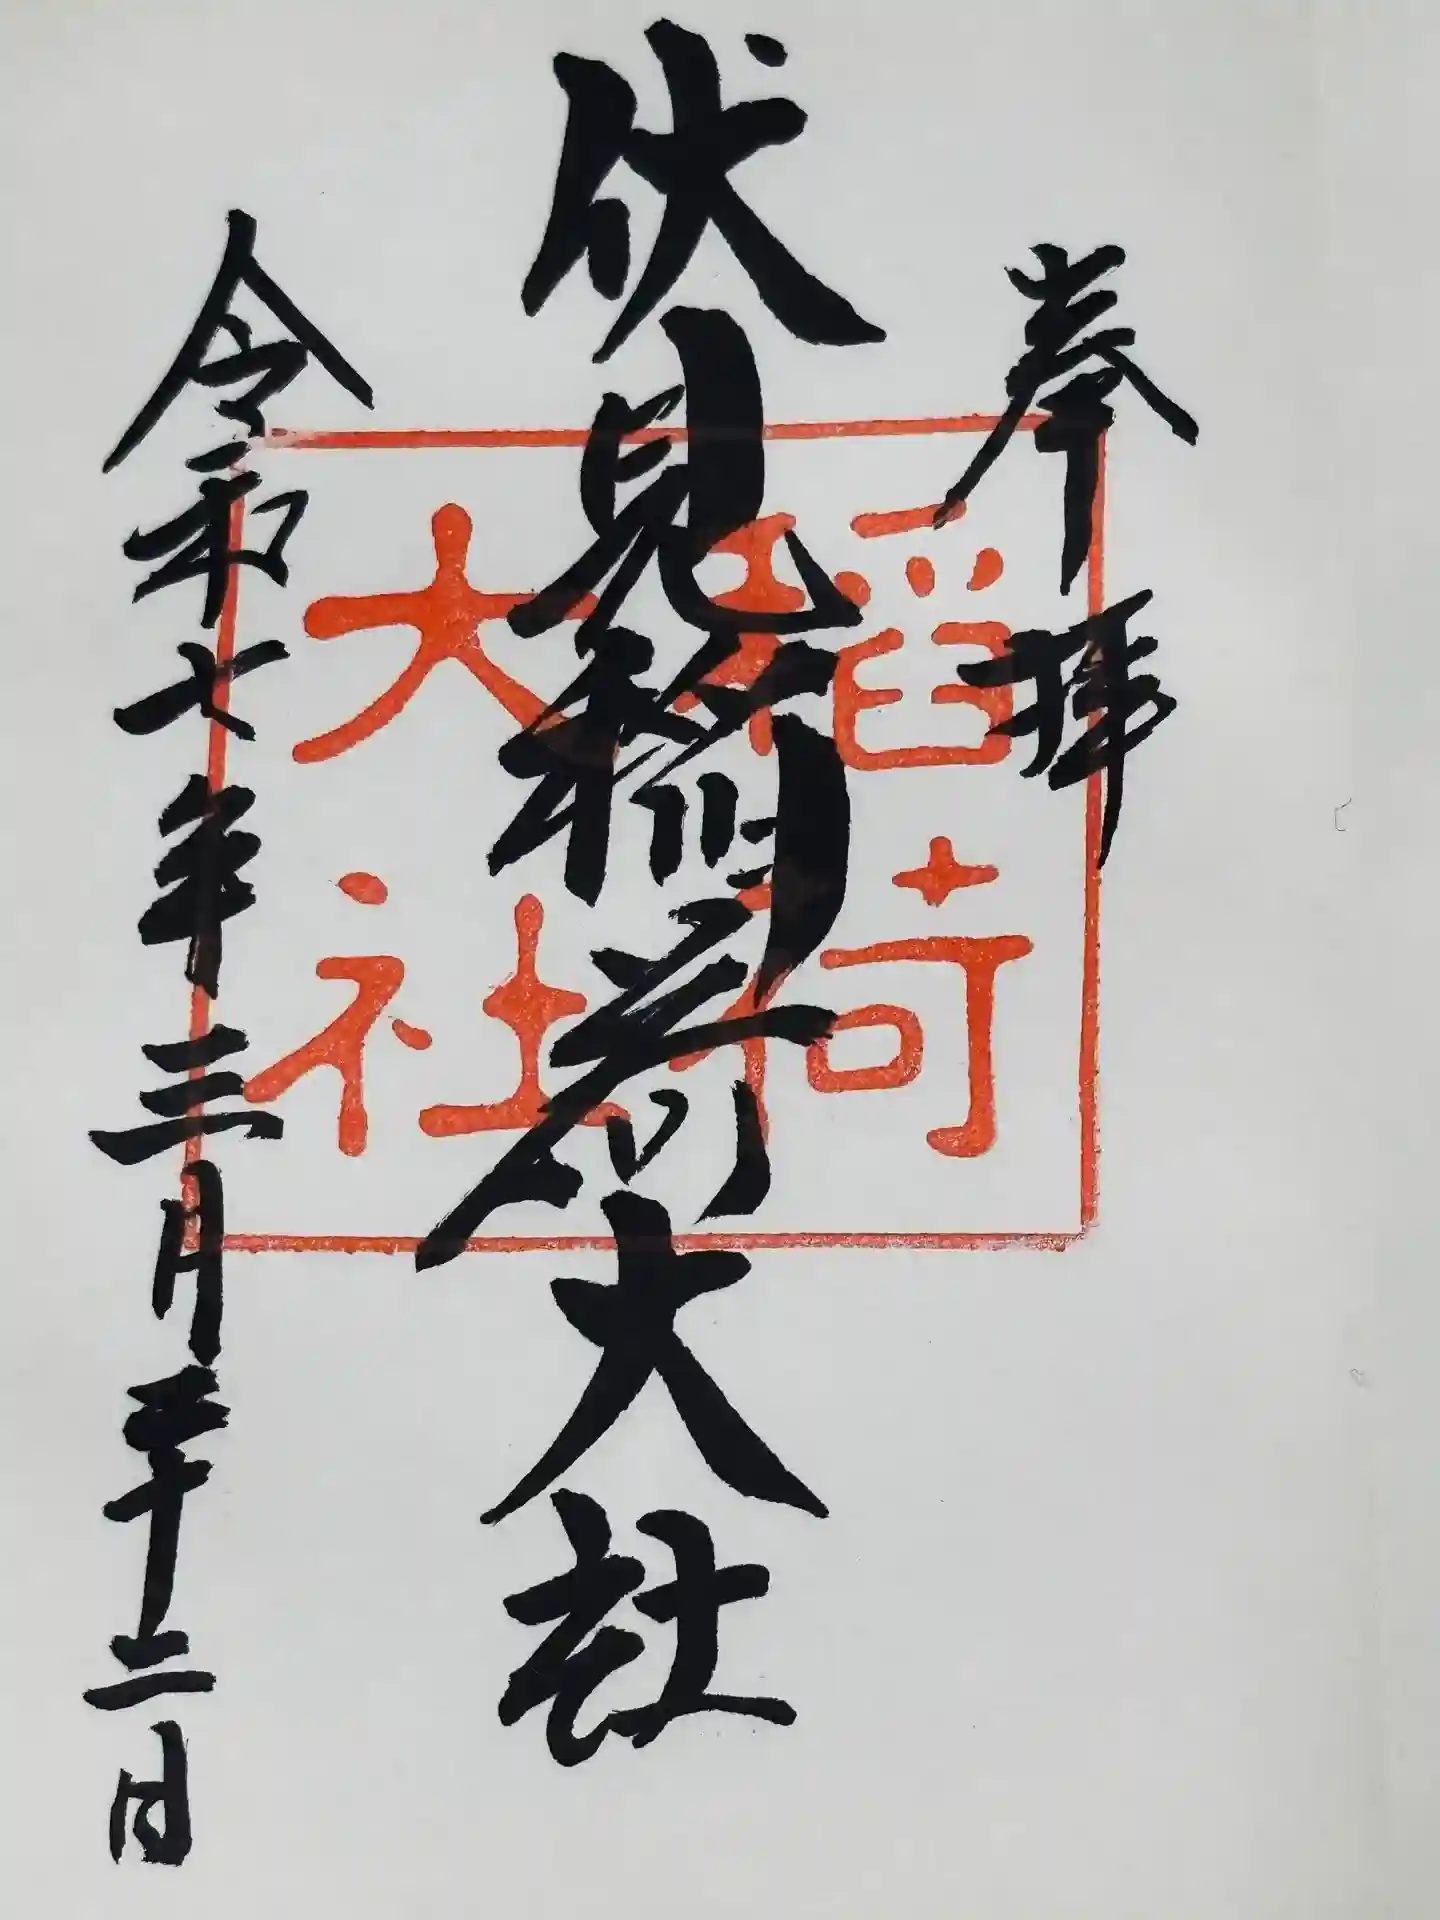 奉拝
伏見稲荷大社
令和七年三月二十二日
稲荷
大社